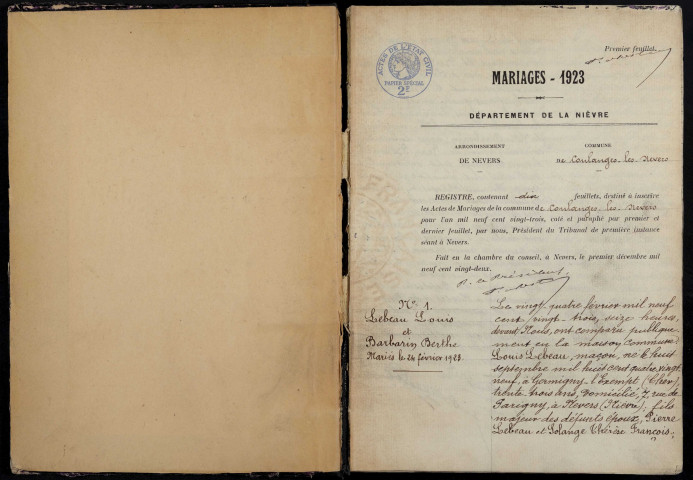 Premier feuillet.
ACTES DE L'ETAT CIVIL
PAPIER SPECIAL
2F
MARIAGES - 1923
DÉPARTEMENT DE LA NIÈVRE
ARRONDISSEMENT
DE NEVERS
COMMUNE
DE Coulanges-les-Nevers
REGISTRE, contenant dix feuillets, destiné à inscrire
les Actes de Mariages de la commune de Coulanges-les-Nevers
pour l'an mil neuf cent vingt-trois, coté et paraphé par premier et
dernier feuillet, par nous, Président du Tribunal de première instance
séant à Nevers.
Fait en la chambre du conseil, à Nevers, le premier décembre mil
neuf cent vingt-deux.
P. le Président
N° 1.
Lebeau Louis
et
Barbarin Berthe
Mariés le 24 février 1923.
Le vingt quatre février mil neuf
cent vingt-trois, seize heures
devant Nous, ont comparu publique
ment en la maison commune:
Louis Lebeau, maçon, né le huit
septembre mil huit cent quatre vingt
neuf, à Germigny-l'Exempt (Cher),
trente trois ans, domicilié, 7, rue de
Parigny, à Nevers (Nièvre), fils
majeur des défunts époux, Pierre
Lebeau et Solange Thérèse François;